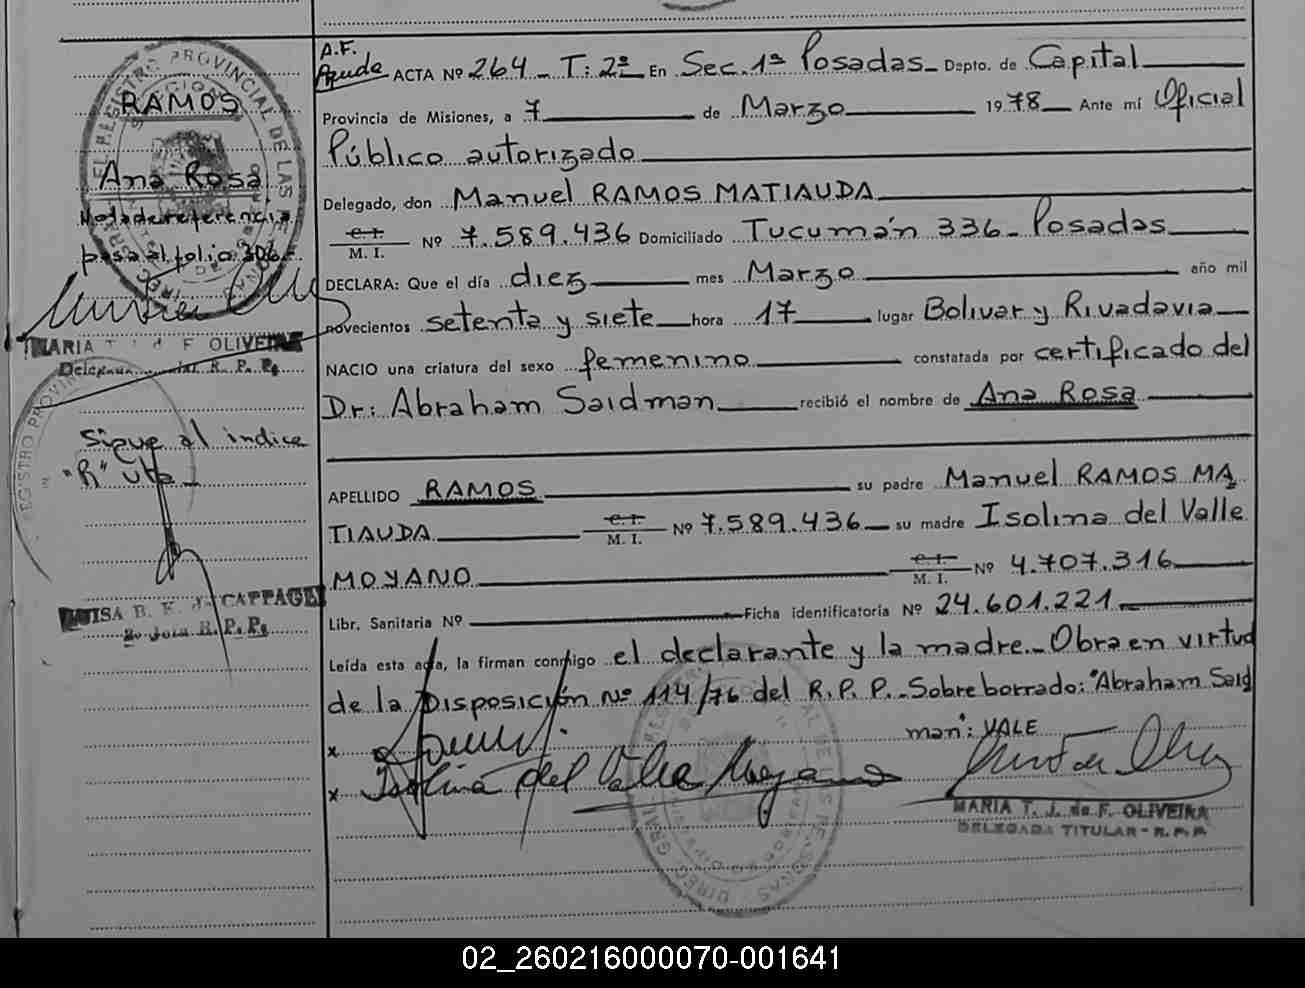 RAMOS
Ana Rosa
Nota de referencia
pasa al folio 306.-
MARIA T. J. de F. OLIVEIRA
Delegada Titular R. P. P.
Sigue al indice
"R" Vta
LUISA B. K. de CAPPAGLI
R. P. P.
A.F.
ACTA Nº 264 - T: 2º En Sec. 1ª Posadas - Dpto. de Capital
Provincia de Misiones, a 7 de Marzo 1978 Ante mí Oficial
Público autorizado
Delegado, don Manuel RAMOS MATIAUDA
C. I.
M. I. Nº 7.589.436 Domiciliado Tucumán 336 - Posadas
DECLARA: Que el día diez mes Marzo año mil
novecientos setenta y siete hora 17 lugar Bolivar y Rivadavia
NACIO una criatura del sexo femenino constatada por certificado del
Dr: Abraham Saidman recibió el nombre de Ana Rosa
APELLIDO RAMOS su padre Manuel RAMOS MA
TIAUDA C. I. M. I. Nº 7.589.436 su madre Isolina del Valle
MOYANO C. I. M. I. Nº 4.707.316
Libr. Sanitaria Nº Ficha identificatoria Nº 24.601.221
Leída esta acta, la firman conmigo el declarante y la madre.- Obra en virtud
de la Disposición Nº 114/76 del R. P. P. - Sobreborrado: "Abraham Said
man": VALE
x
x Isolina del Valle Moyano
MARIA T. J. de F. OLIVEIRA
DELEGADA TITULAR - R. P. P.
02_260216000070-001641